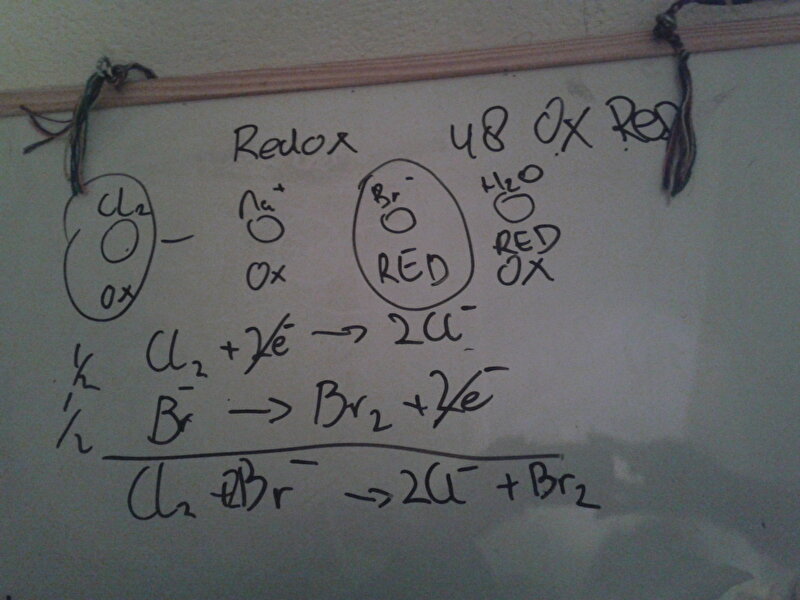 Redox 48 OX RED
Cl2 Na+ Br- H2O
RED
OX OX RED OX
1/2 Cl2 + 2e- → 2Cl-
1/2 Br- → Br2 + 2e-
Cl2 + 2Br- → 2Cl- + Br2